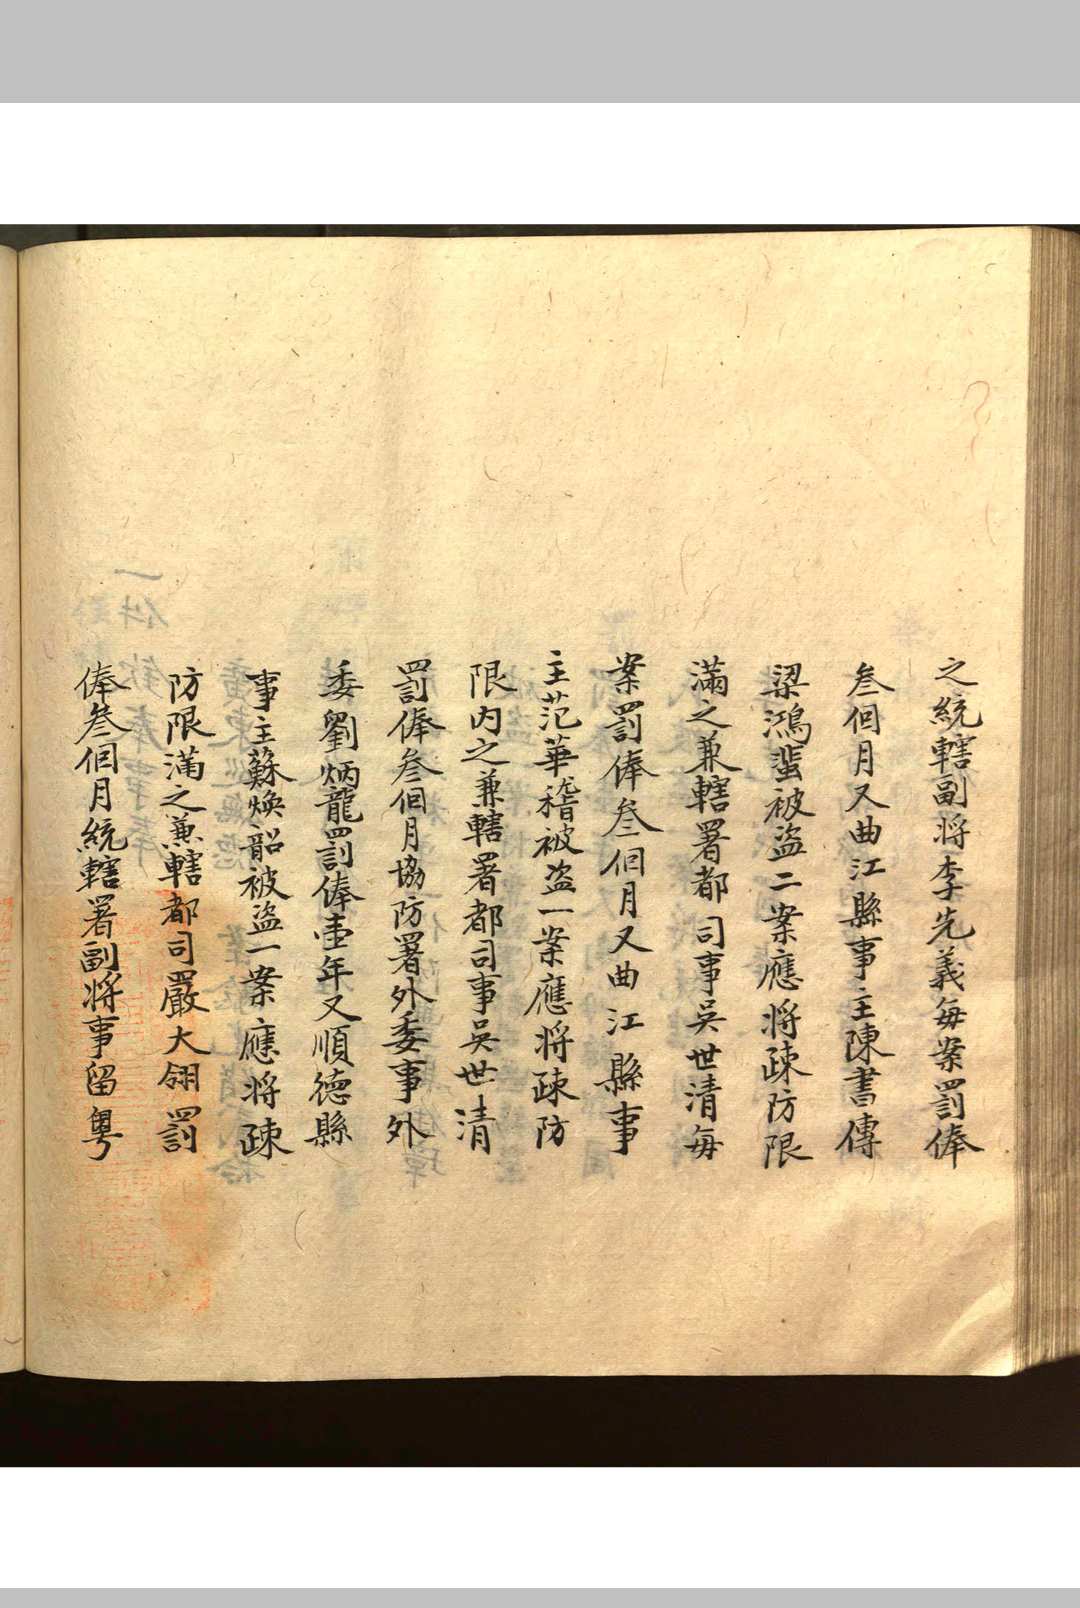 之統轄副将李先義每案罰俸
叁個月又曲江縣事主陳書傳
梁鴻蜚被盜二案應将疎防限
滿之兼轄署都司事吳世清每
案罰俸叁個月又曲江縣事
主范華稽被盜一案應将疎防
限内之兼轄署都司事吳世清
罰俸叁個月協防署外委事外
委劉炳龍罰俸壹年又順德縣
事主蘇煥韶被盜一案應将疎
防限滿之兼轄都司嚴大翎罰
俸叁個月統轄署副将事留粵